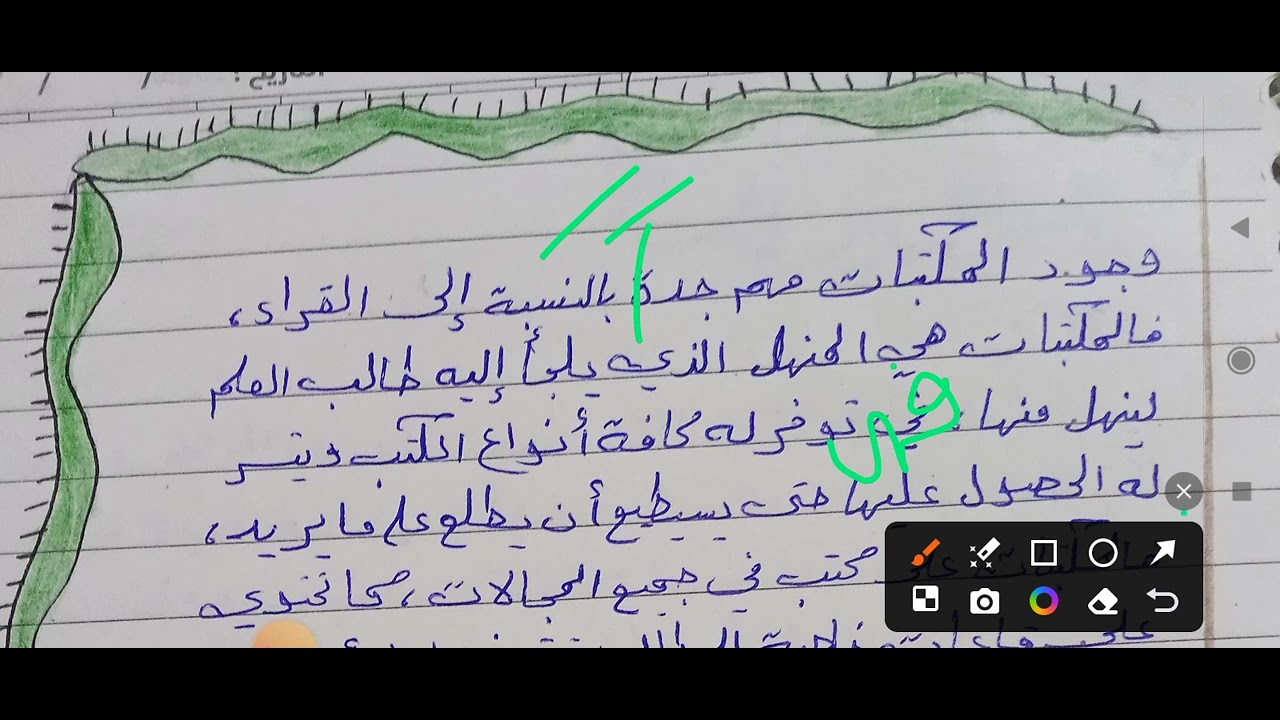 التاريخ : / /
وجود المكتبات مهم جدة بالنسبة إلى القراء،
فالمكتبات هي المنهل الذي يلجأ إليه طالب العلم
لينهل منها، فهي توفر له كافة أنواع الكتب وتيسر
له الحصول عليها حتى يسطيع أن يطلع على ما يريد،
على كتب في جميع المجالات، كما تحتوي
على